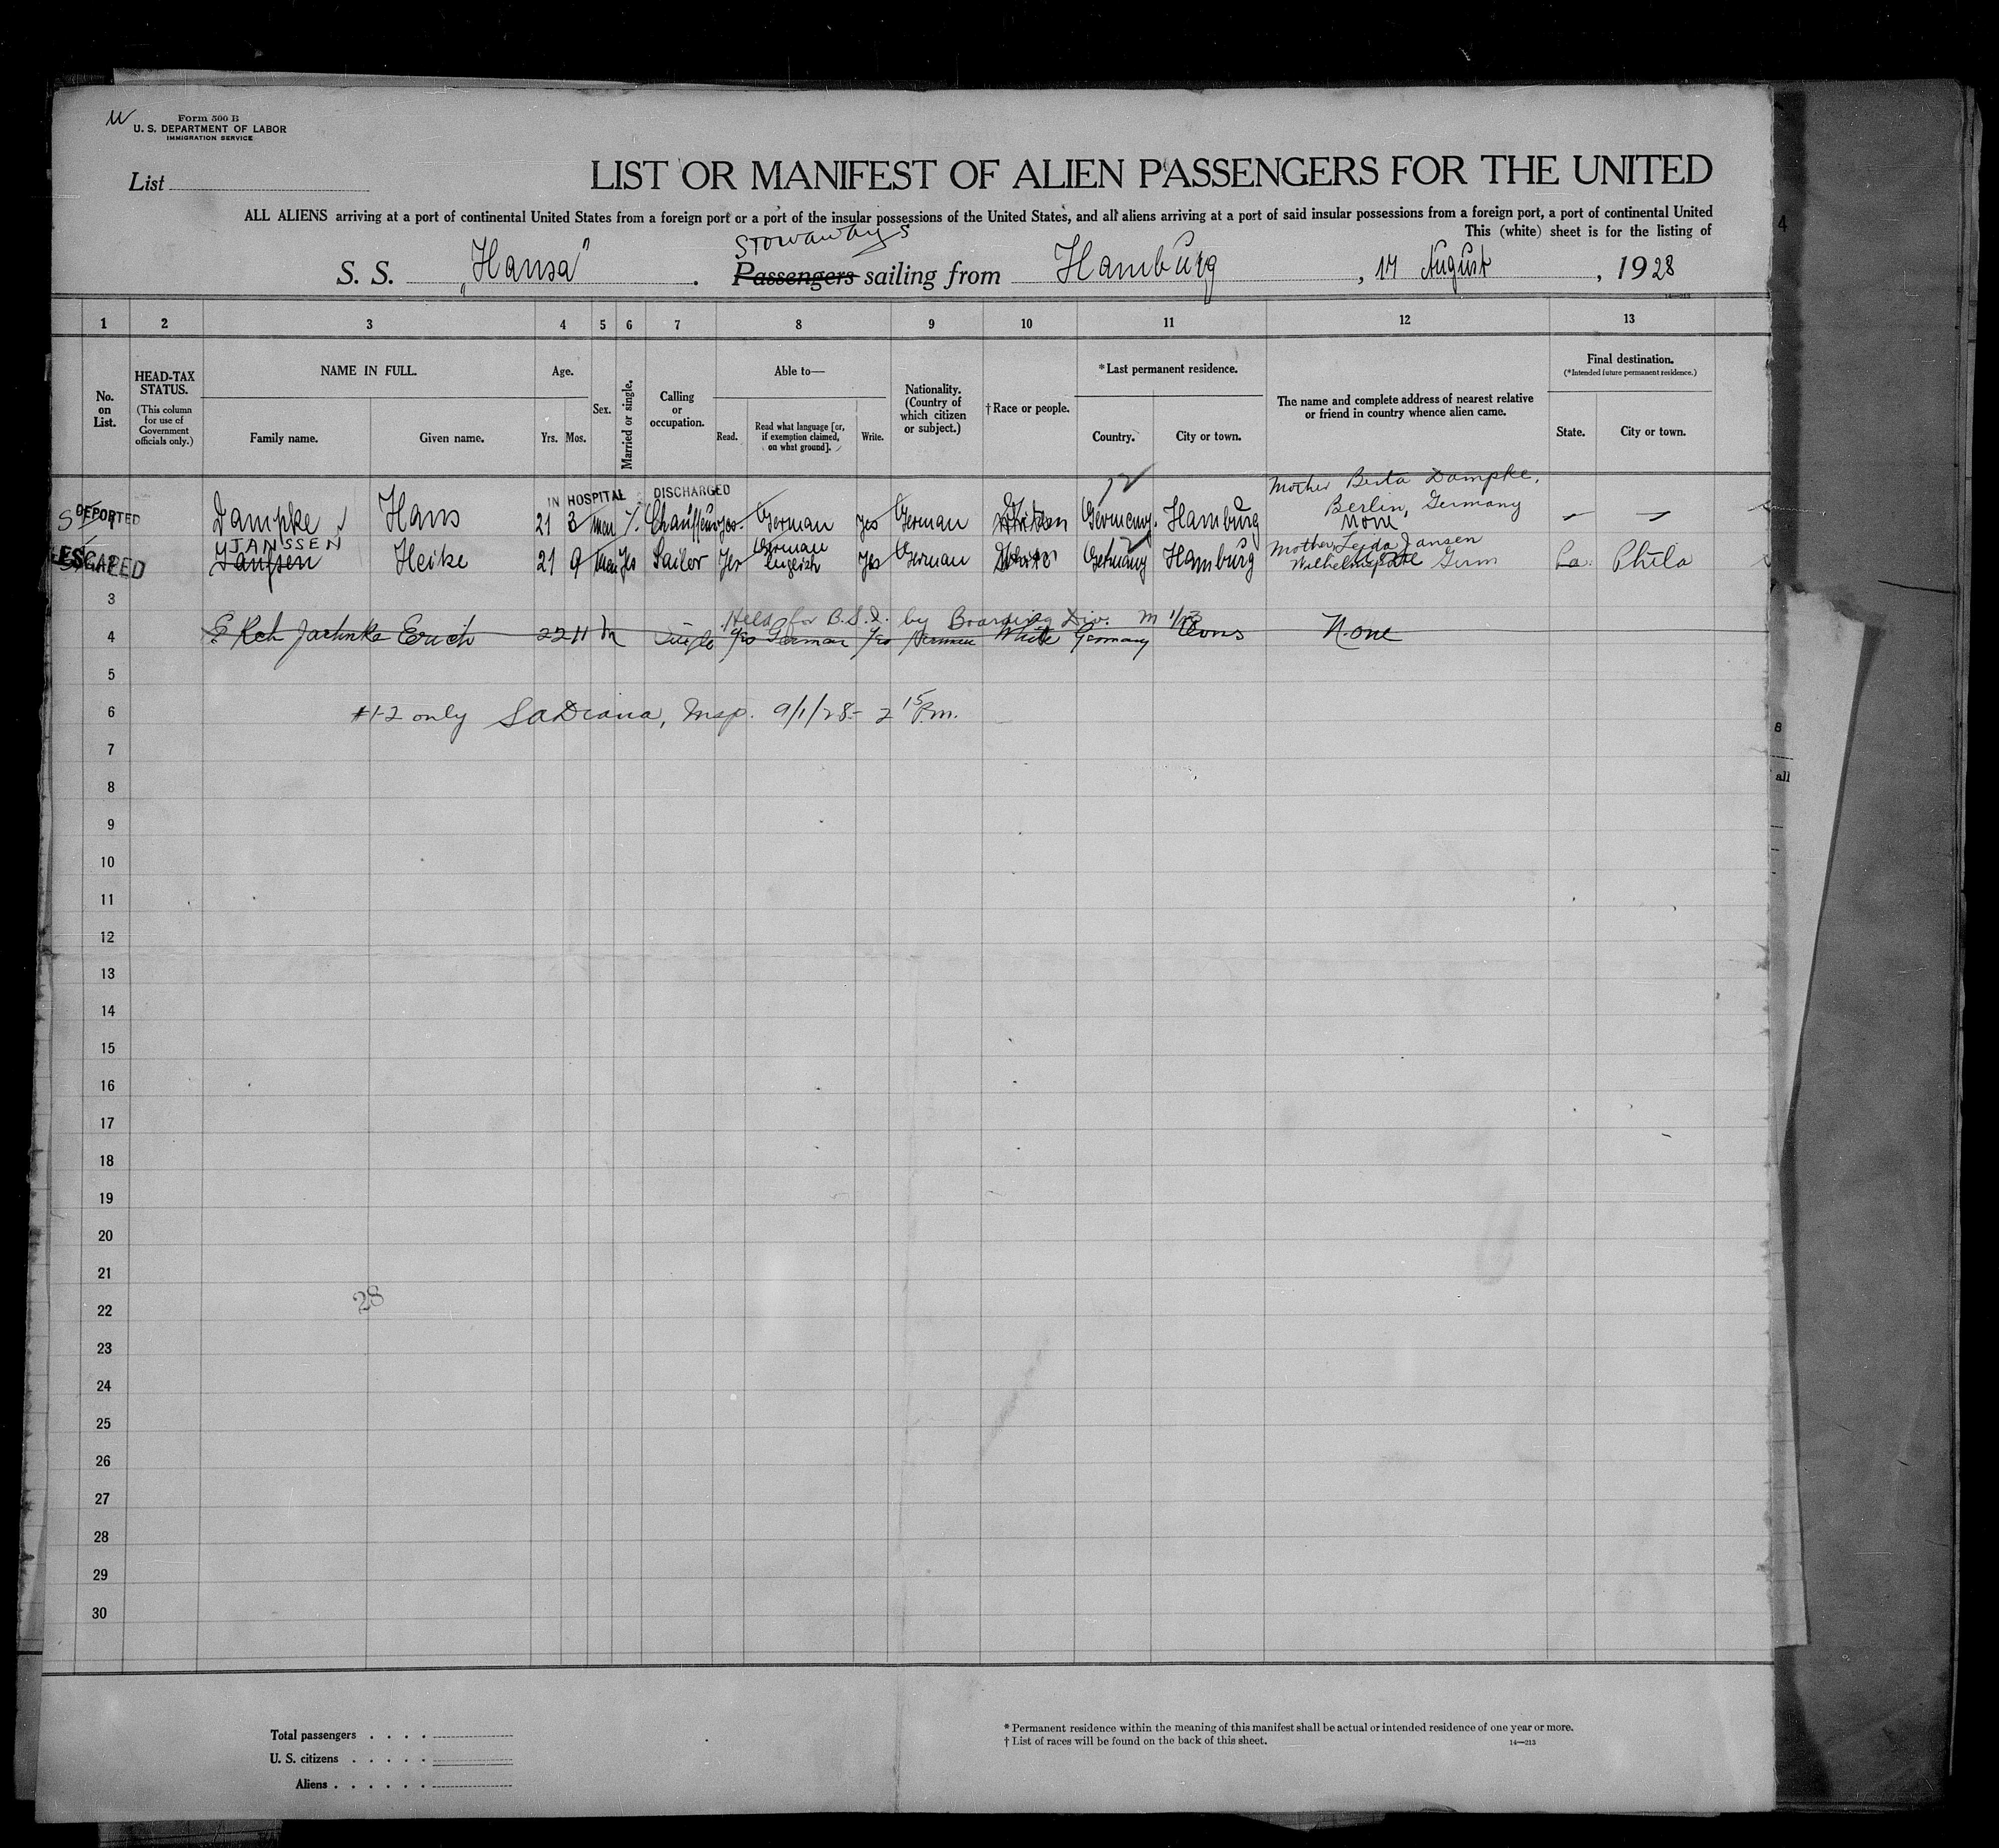 Form 500 B
U. S. DEPARTMENT OF LABOR
IMMIGRATION SERVICE
List
LIST OR MANIFEST OF ALIEN PASSENGERS FOR THE UNITED
ALL ALIENS arriving at a port of continental United States from a foreign port or a port of the insular possessions of the United States, and all aliens arriving at a port of said insular possessions from a foreign port, a port of continental United
This (white) sheet is for the listing of
Stowaways
S. S. "Hansa" . Passengers sailing from Hamburg , 17 August , 1928
14—213
1 2 3 4 5 6 7 8 9 10 11 12 13
No. on List.
HEAD-TAX STATUS.
(This column for use of Government officials only.)
NAME IN FULL.
Family name. Given name.
Age.
Yrs. Mos.
Sex.
Married or single.
Calling or occupation.
Able to—
Read. Read what language [or, if exemption claimed, on what ground]. Write.
Nationality. (Country of which citizen or subject.)
† Race or people.
* Last permanent residence.
Country. City or town.
The name and complete address of nearest relative or friend in country whence alien came.
Final destination.
(* Intended future permanent residence.)
State. City or town.
IN HOSPITAL DISCHARGED
Mother Berta Dampke,
Berlin, Germany
DEPORTED Dampke Hans 21 3 Chauffeur yes German yes German Germany Hamburg None
JANSSEN
German
Mother Leida Jansen
ESCAPED Janssen Heike 21 9 Yes Sailor Yes English Yes German Germany Hamburg Germ Pa. Phila
3
Held for B.S.I. by Boarding Div.
4 Jachnke Erich 22 11 m Single Yes German Yes German White Germany None
5
6 #1-2 only Insp. 9/1/28 - 2 15 P.m.
7
8
9
10
11
12
13
14
15
16
17
18
19
20
21
28
22
23
24
25
26
27
28
29
30
Total passengers . . . .
U. S. citizens . . . . .
Aliens . . . . . .
* Permanent residence within the meaning of this manifest shall be actual or intended residence of one year or more.
† List of races will be found on the back of this sheet.
14—213
4
8
all